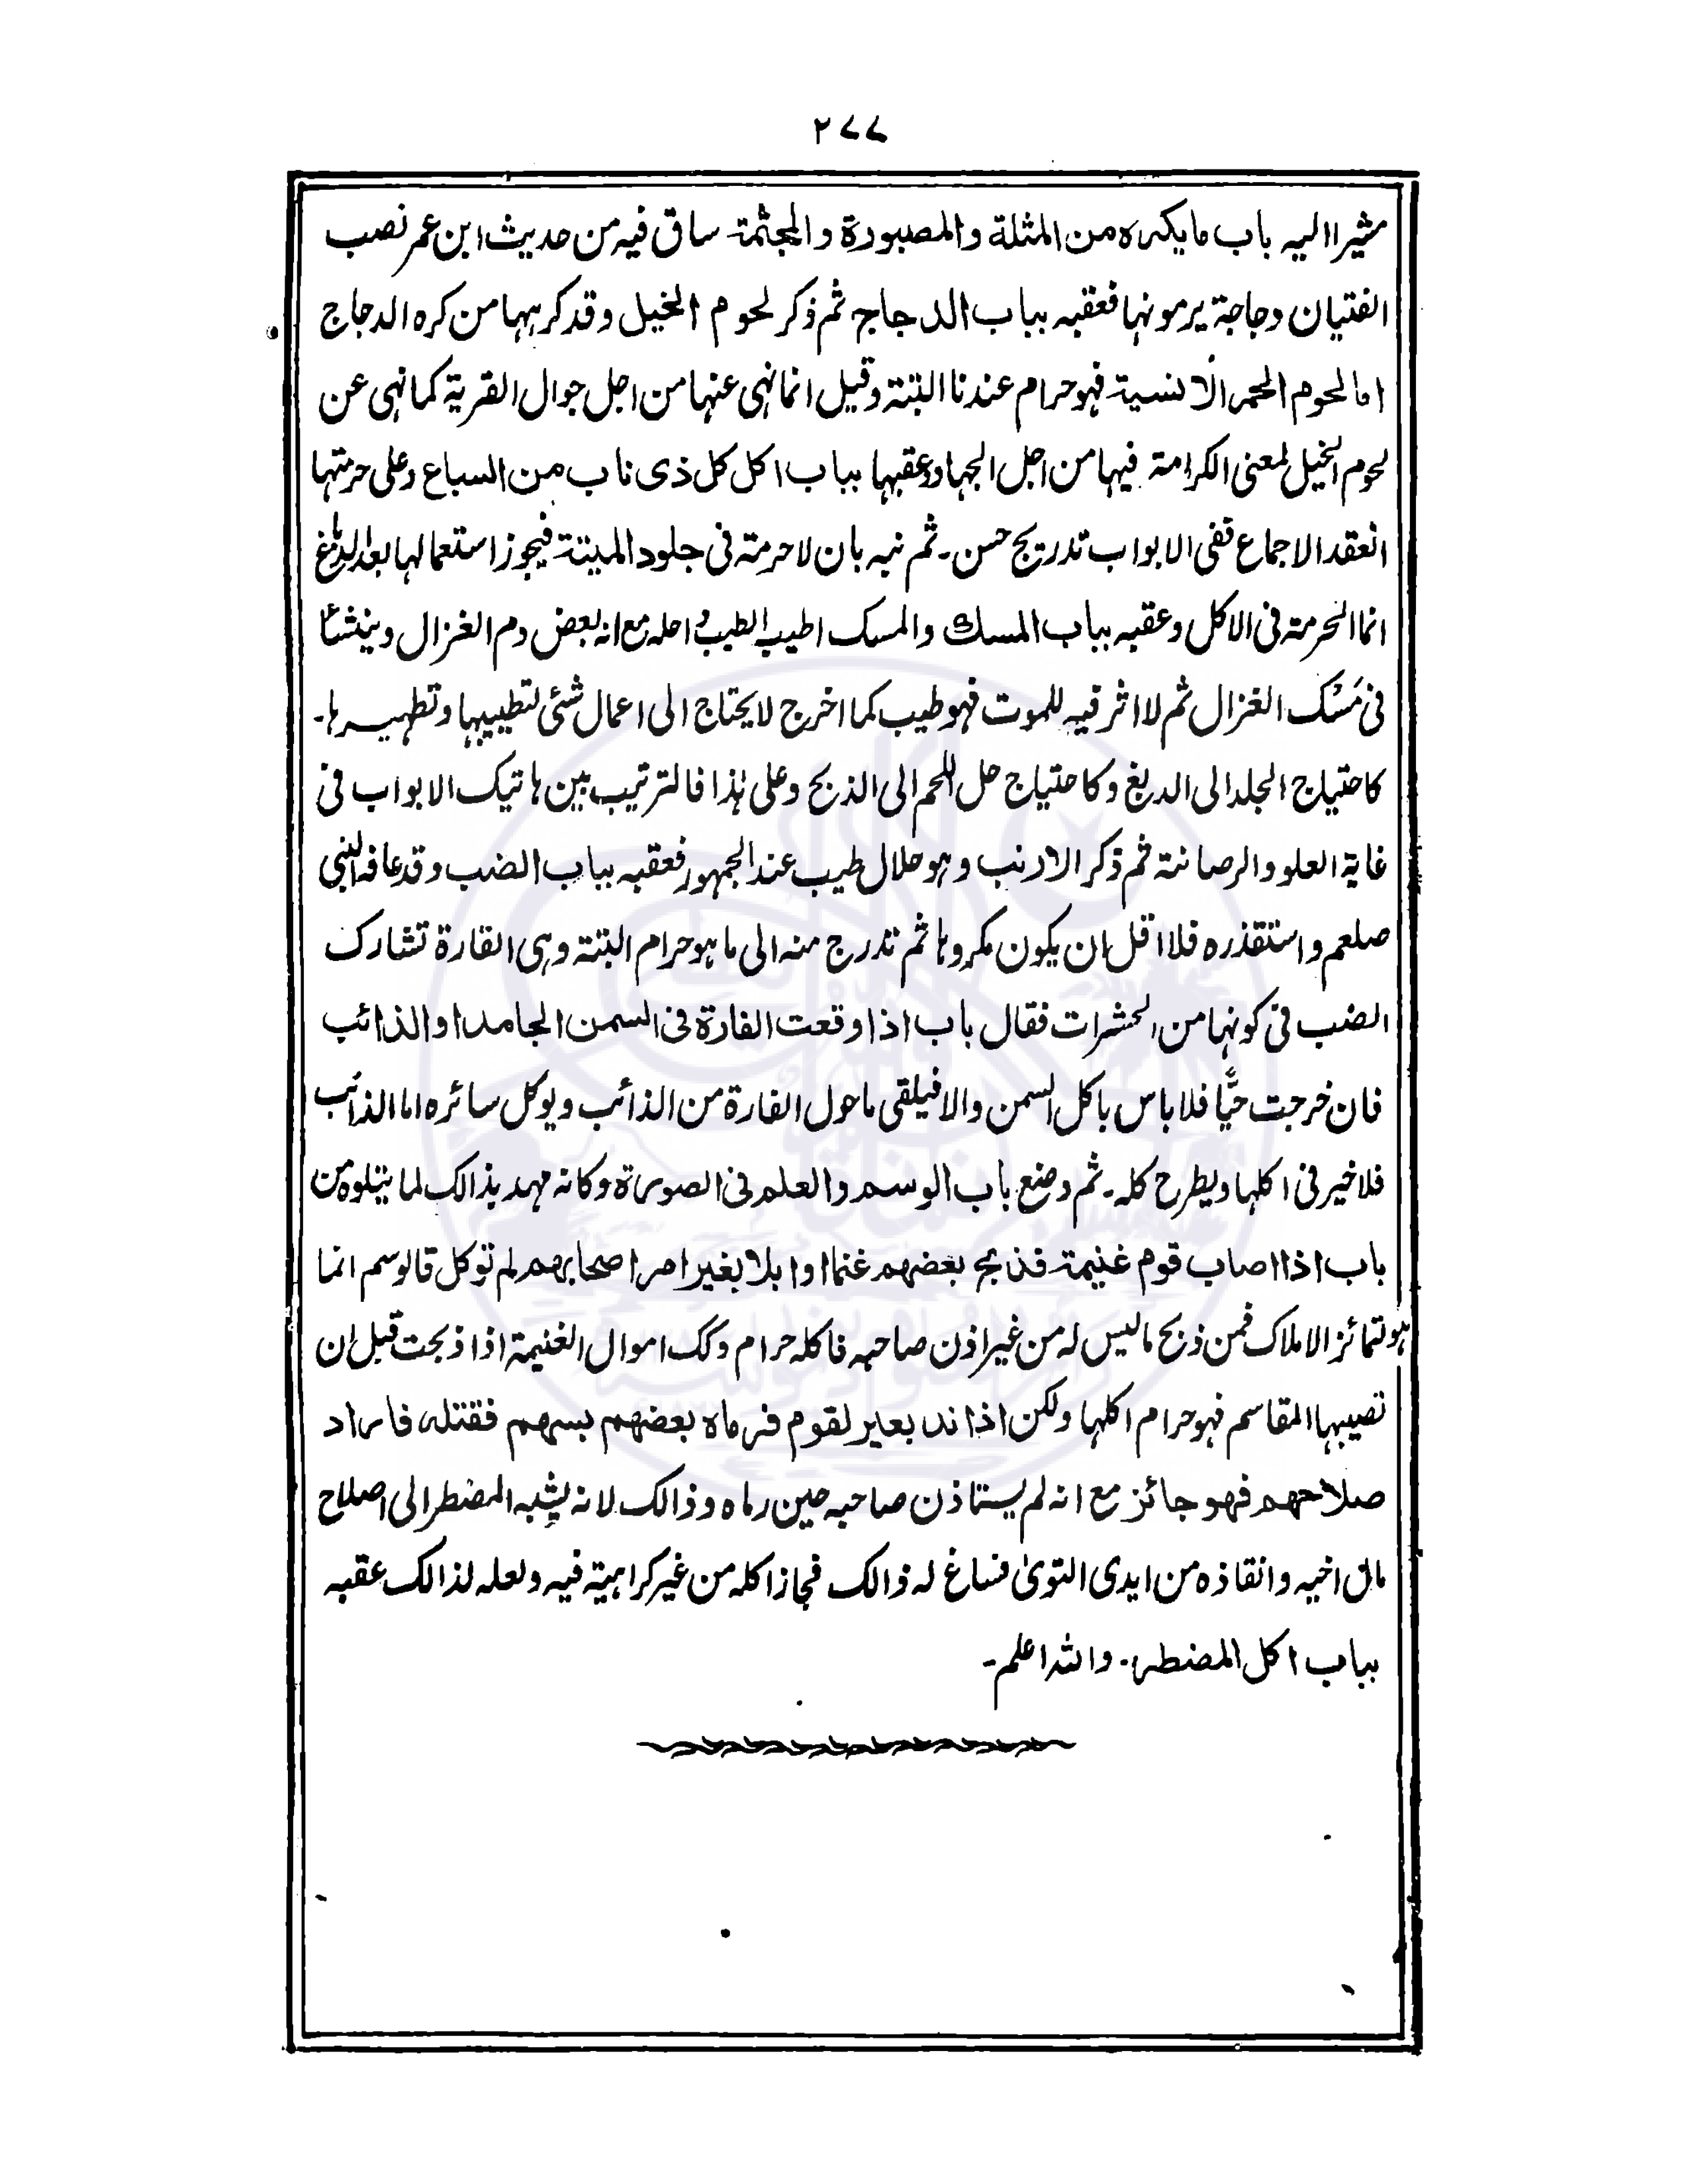 ۲۷۷
مشیرا الیه باب ما یکره من المثلة والمصبورة والمجثمة ساق فیه من حدیث ابن عمر نصب
الفتیان دجاجة یرمونها فعقبه بباب الدجاج ثم ذکر لحوم الخیل وقد کرهها من کره الدجاج
اما لحوم الحمر الانسیة فهو حرام عندنا البتة وقیل انما نهی عنها من اجل جوال القریة کما نهی عن
لحوم الخیل لمعنی الکرامة فیها من اجل الجهاد وعقبها بباب اکل کل ذی ناب من السباع وعلی حرمتها
انعقد الاجماع ففی الابواب تدریج حسن۔ ثم نبه بان لا حرمة فی جلود المیتة فیجوز استعمالها بعد الدبغ
انما الحرمة فی الاکل وعقبه بباب المسك والمسک اطیب الطیب و احله مع انه بعض دم الغزال وینشأ
فی مَسْک الغزال ثم لا اثر فیه للموت فهو طیب کما اخرج لا یحتاج الی اعمال شئی لتطییبها وتطهیرها۔
کاحتیاج الجلد الی الدبغ وکاحتیاج حل اللحم الی الذبح وعلی هذا فالترتیب بین هاتیک الابواب فی
غایة العلو والرصانة ثم ذکر الارنب وهو حلال طیب عند الجمهور فعقبه بباب الضب وقد عافه النبی
صلعم واستقذره فلا اقل ان یکون مکروها ثم تدرج منه الی ما هو حرام البتة وهی الفارة تشارک
الضب فی کونها من الحشرات فقال باب اذا وقعت الفارة فی السمن الجامد او الذائب
فان خرجت حیًّا فلا باس باکل السمن والا فیلقی ما حول الفارة من الذائب ویوکل سائره اما الذائب
فلا خیر فی اکلها ویطرح کله۔ ثم وضع باب الوسم والعلم فی الصورة وکانه مهد بذالک لما یتلوه من
باب اذا اصاب قوم غنیمة فذبح بعضهم غنما او ابلا بغیر امر اصحابهم لم توکل فالوسم انما
هو لتمائز الاملاک فمن ذبح ما لیس له من غیر اذن صاحبه فاکله حرام وکک اموال الغنیمة اذا ذبحت قبل ان
تصیبها المقاسم فهو حرام اکلها ولکن اذا ند بعیر لقوم فرماه بعضهم بسهم فقتله فاراد
صلاحهم فهو جائز مع انه لم یستاذن صاحبه حین رماه وذالک لانه یشبه المضطر الی اصلاح
مال اخیه وانقاذه من ایدی التویٰ فساغ له ذالک فجاز اکله من غیر کراهیة فیه ولعله لذالک عقبه
بباب اکل المضطر۔ والله اعلم۔